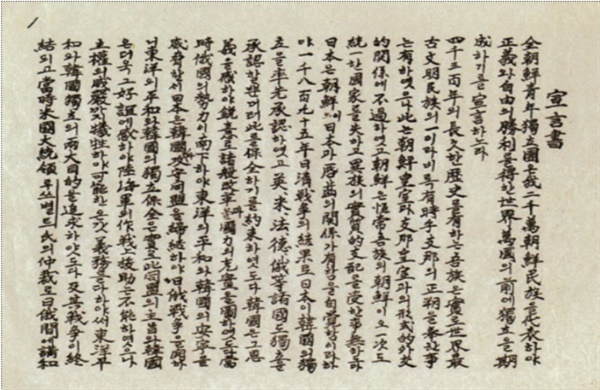 宣言書
全朝鮮青年獨立團은我二千萬朝鮮民族을代表하야
正義와自由의勝利를得한世界萬國의前에獨立을期
成하기를宣言하노라
四千三百年의長久한歷史를有하는吾族은實로世界最
古文明民族의一이라비록有時乎支那의正朔을奉한事
는有하엿으나此는朝鮮皇室과支那皇室과의形式的外交
的關係에不過하엿고朝鮮은恒常吾族의朝鮮이오一次도
統一한國家를失하고異族의實質的支配를受한事無하도다
日本은朝鮮이日本과唇齒의關係가有함을自覺함이라하
야一千八百九十五年日清戰爭의結果로日本이韓國의獨
立을率先承認하엿고英、米、法、德、俄等諸國도獨立을
承認할뿐더러此를保全하기를約束하엿도다韓國은그恩
義를感하야銳意로諸般改革과國力의充實을圖하엿도다當
時俄國의勢力이南下하야東洋의平和와韓國의安寧을
威脅할새日本은韓國과攻守同盟을締結하야日俄戰爭을開하
니東洋의平和와韓國의獨立保全은實로此同盟의主旨와韓國
은더욱그好誼에感하야陸海軍의作戰上援助는不能하엿으나
主權의威嚴까지犧牲하야可能한온갓義務를다하야써東洋平
和와韓國獨立의兩大目的을追求하얏도다及其戰爭이終
結되고當時米國大統領루쓰벨트氏의仲裁로日俄間에講和
1